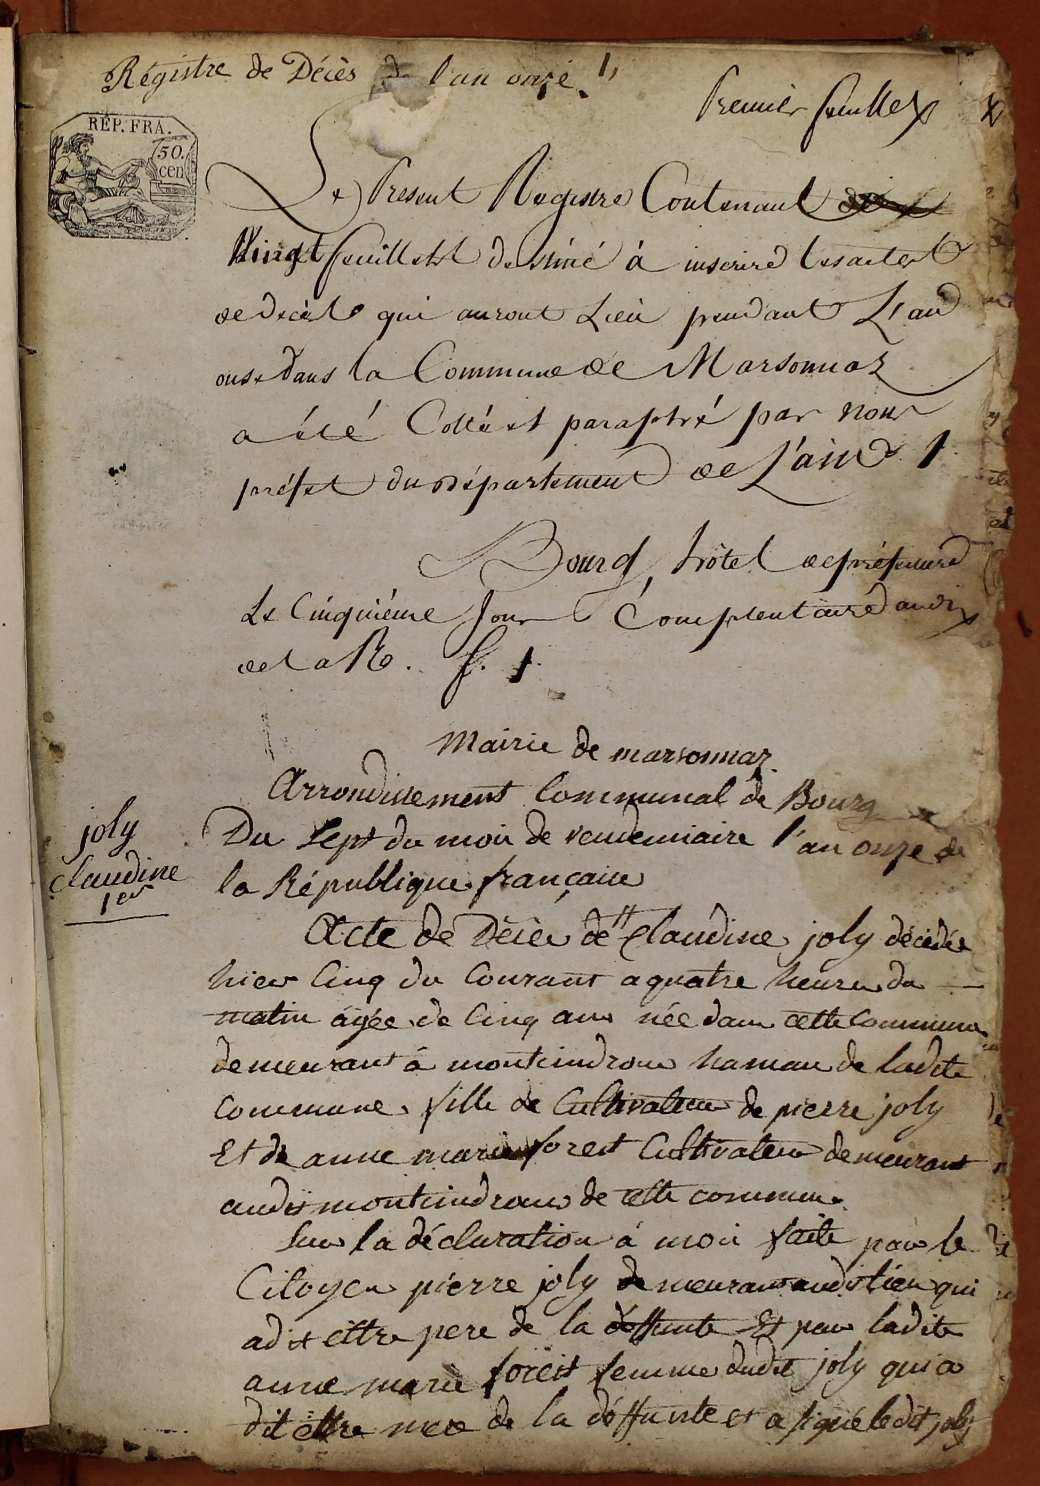 Registre de Décès de l'an onze 1,
Premier feuillet
RÉP. FRA.
50.
cen
Le Présent Registre Contenant
Vingt feuillets destiné à inscrire les actes
de décès qui auront Lieu pendant L'an
onze dans la Commune de Marsonnaz
a été Cotté et paraphé par nous
préfet du département de L'ain
Bourg, hôtel de préfecture
Le Cinquième Jour Complentaire an dix
de la R. f.
Mairie de marsonnaz
Arrondissement Communal de Bourg
joly
claudine
1er
Du Sept du mois de vendemiaire l'an onze de
la République française
Acte de Décès de Claudine joly décédée
hier Cinq du Courant a quatre heures du
matin âgée de Cinq ans née dans cette Commune
demeurant à monteindroux hamau de ladite
Commune. fille de Cultivateur de pierre joly
Et de anne marie forest Cultivateur demeurant
audit monteindroux de cette commune.
Sur la déclaration à moi faite par le
Citoyen pierre joly demeurant audit lieu qui
a dit ettre pere de la deffunte Et par ladite
anne marie forest femme dudit joly qui a
dit ettre mere de la déffunte et a signé ledit joly